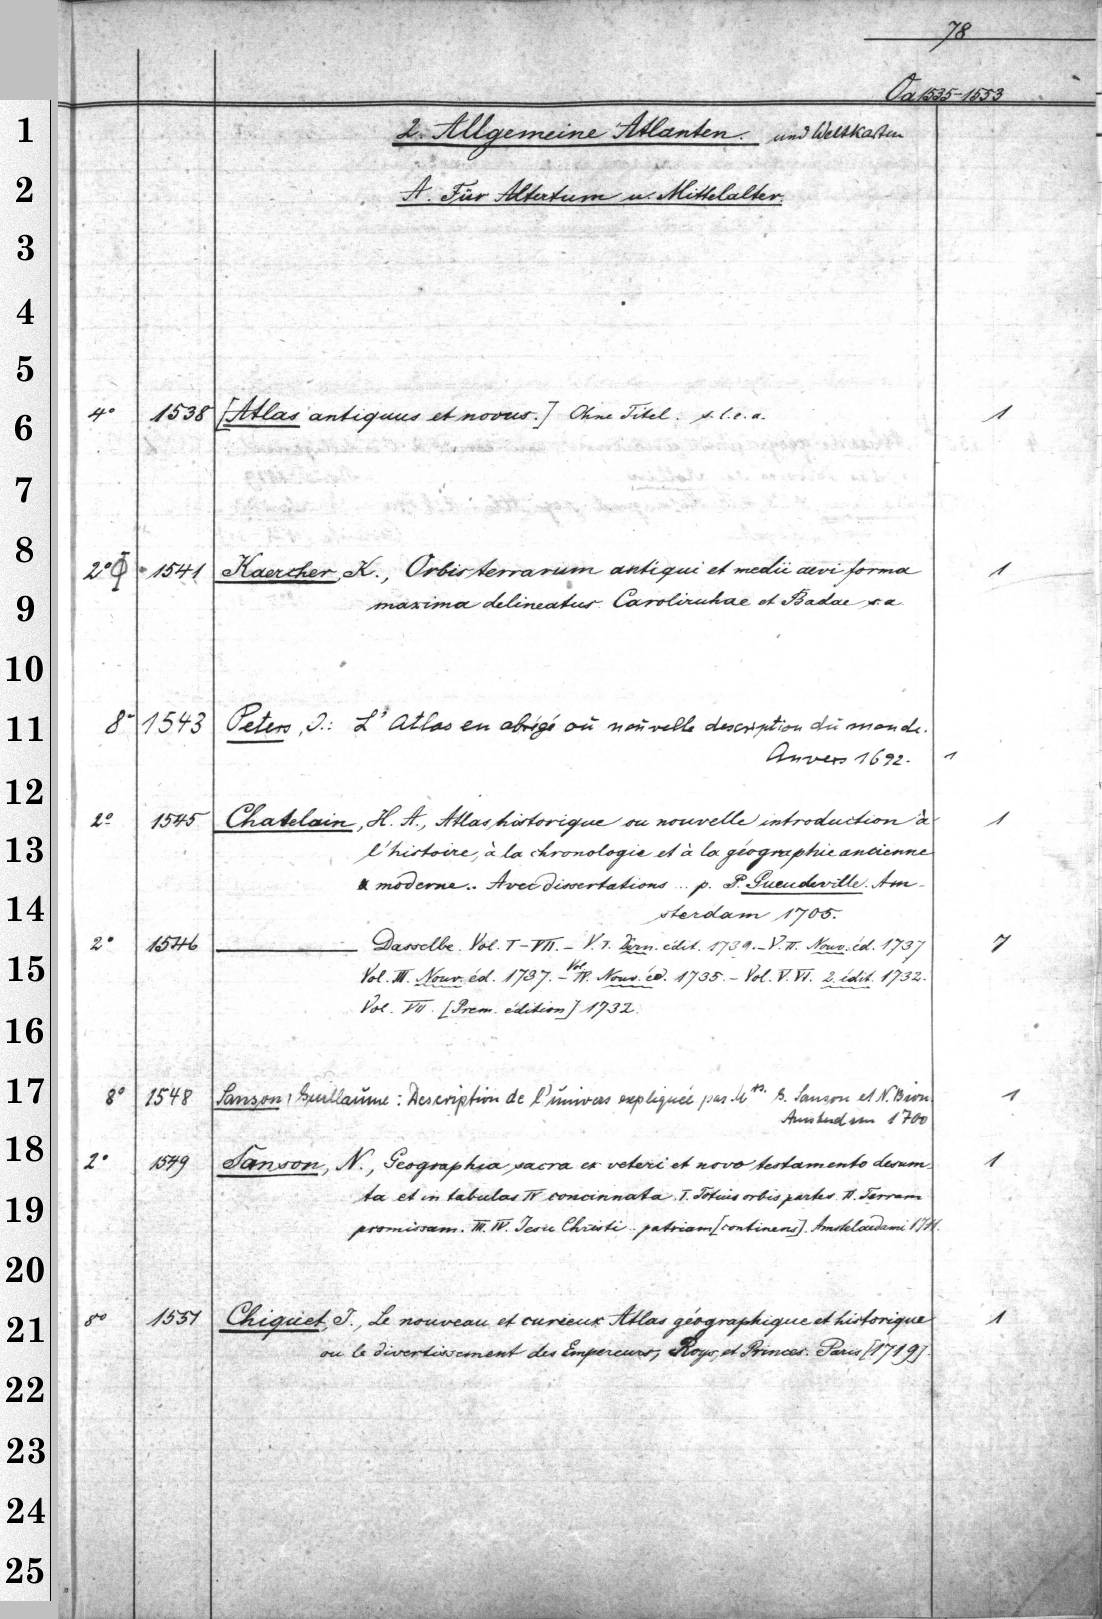 78
Oa 1535-1553
1
2. Allgemeine Atlanten. und Weltkarten
2
A. Für Altertum u. Mittelalter.
3
4
5
6
4° 1538 [Atlas antiquus et novus.] Ohne Titel. s.l.e.a. 1
7
8
2° Φ 1541 Kaercher, K., Orbis terrarum antiqui et medii aevi forma 1
9
maxima delineatus. Carolsruhae et Badae s.a.
10
11
8° 1543 Peters, J.: L'Atlas en abrégé oŭ noŭvelle description dŭ monde.
Anvers 1692. 1
12
2° 1545 Chatelain, H. A., Atlas historique ou nouvelle introduction à 1
13
l'histoire, à la chronologie et à la géographie ancienne
& moderne.. Avec dissertations .. p. P. Gueudeville. Am-
14
sterdam 1705.
2° 1546 ——— Dasselbe. Vol. I-VII. - V. I. Dern. édit. 1739. - V. II. Nouv. éd. 1737 7
15
Vol. III. Nouv. éd. 1737. - Vol. IV. Nouv. éd. 1735. - Vol. V. VI. 2. édit. 1732.
Vol. VII. [Prem. édition] 1732.
16
17
8° 1548 Sanson, Guillaŭme: Description de l'ŭnivers expliqueé par Mrs. G. Sanson et N. Bion. 1
Amsterdam 1700
18
2° 1549 Sanson, N., Geographia sacra ex veteri et novo testamento desum- 1
19
ta et in tabulas IV concinnata. I. Totius orbis partes. II. Terram
promissam. III. IV. Jesu Christi .. patriam [continens]. Amstelaedami 1711.
20
21
8° 1551 Chiquet, J., Le nouveau et curieux Atlas géographique et historique 1
ou le divertissement des Empereurs, Roys, et Princes. Paris [1719].
22
23
24
25